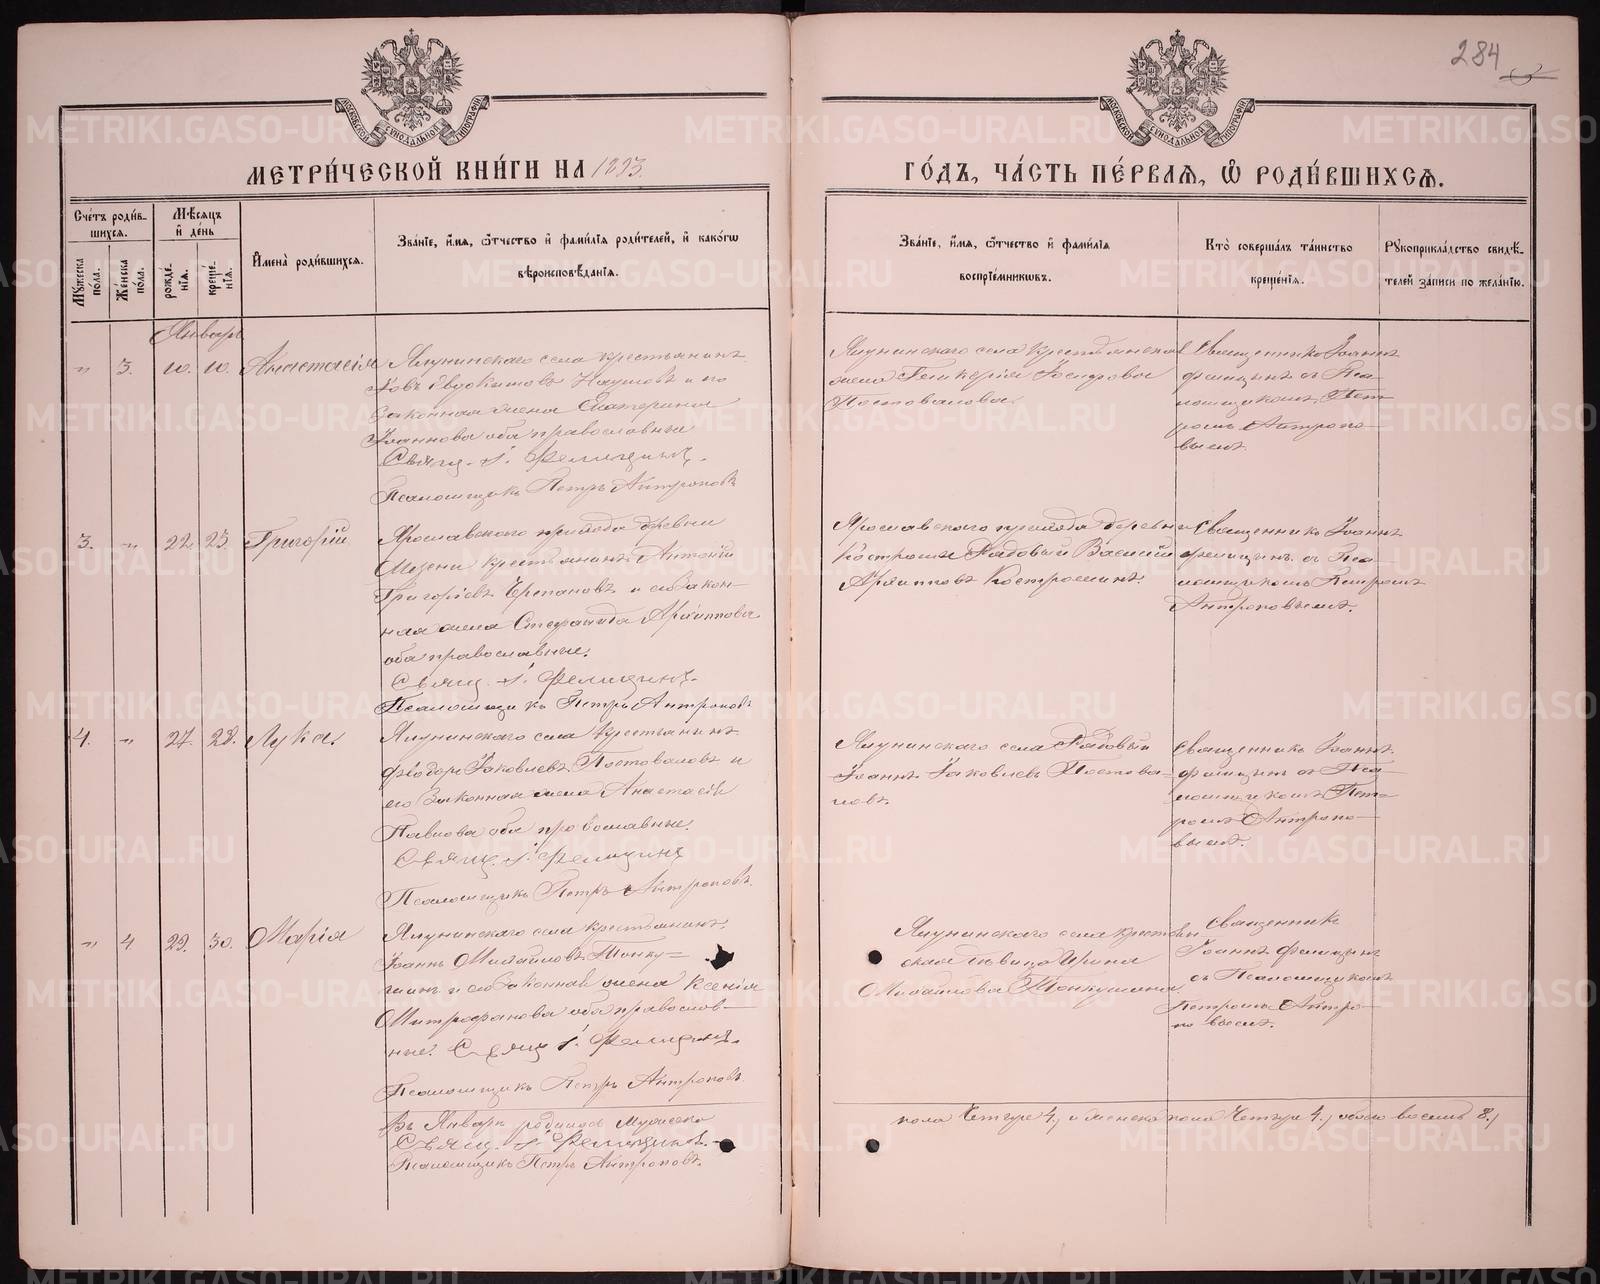 284
МОСКОВСКОЙ СΥНОДАЛЬНОЙ ТИПОГРАФІИ
МОСКОВСКОЙ СΥНОДАЛЬНОЙ ТИПОГРАФІИ
МЕТРИ́ЧЕСКОЙ КНИ́ГИ НА 1893.
ГО́ДЪ, ЧА́СТЬ ПЕ́РВАЯ, Ѡ РОДИ́ВШИХСѦ.
Сче́тъ роди́в-
шихся.
Мѣ́сяцъ
и де́нь
Му́жеска по́ла.
Же́нска по́ла.
рожде́нїя.
креще́нїя.
И҆мена̀ роди́вшихся.
Зва́нїе, и҆́мя, ѻ҆́тчество и҆ фами́лїя роди́телей, и҆ како́гѡ
вѣроисповѣ́данїя.
Зва́нїе, и҆́мя, ѻ҆́тчество и҆ фами́лїя
воспрїе́мникѡвъ.
Кто̀ соверша́лъ та́инство
креще́нїя.
Рꙋкоприкла́дство свидѣ́-
телей за́писи по жела́нїю.
Январь
" 3. 10. 10. Анастасія
Ялунинскаго села крестьянинъ
Іовъ Евдокимовъ Наумовъ и его
законная жена Екатерина
Іоаннова оба православные
Свящ. І. Фелицинъ.
Псаломщикъ Петръ Антроповъ
Ялунинскаго села крестьянская
жена Гликерія Іосифова
Постовалова
Священникъ Іоаннъ
Фелицынъ съ Пса-
ломщикомъ Пет-
ромъ Антропо-
вымъ.
3. " 22. 23. Григорій
Ярославскаго прихода деревни
Мезени крестьянинъ Антоній
Григорьевъ Черепановъ и его закон-
ная жена Стефанида Архиппова
оба православные.
Свящ. І. Фелицинъ.
Псаломщикъ Петръ Антроповъ
Ярославскаго прихода деревни
Костромина Рядовый Василій
Архипповъ Костроминъ
Священникъ Іоаннъ
Фелицынъ съ Пса-
ломщикомъ Петромъ
Антроповымъ.
4. " 27. 28. Лука.
Ялунинскаго села Крестьянинъ
Феодоръ Іаковлевъ Постоваловъ и
его Законная жена Анастасія
Павлова оба православные.
Свящ. І. Фелицинъ
Псаломщикъ Петръ Антроповъ.
Ялунинскаго села Рядовый
Іоаннъ Іаковлевъ Постова-
ловъ.
Священникъ Іоаннъ
Фелицынъ съ Пса-
ломщикомъ Пет-
ромъ Антропо-
вымъ.
" 4 29. 30. Марія
Ялунинскаго села крестьянинъ
Іоаннъ Михайловъ Тонку-
шинъ и его законная жена Ксенія
Митрофанова оба православ-
ные. Свящ. І. Фелицинъ.
Псаломщикъ Петръ Антроповъ.
Ялунинскаго села крестьян-
ская дѣвица Ирина
Михайлова Тонкушина
Священникъ
Іоаннъ Фелицынъ
съ Псаломщикомъ
Петромъ Антро-
повымъ.
Въ Январѣ родилось мужеска
пола Четыре 4, и женска пола Четыре 4, обоего восемь 8.
Свящ. І. Фелицинъ.
Псаломщикъ Петръ Антроповъ.
METRIKI.GASO-URAL.RU